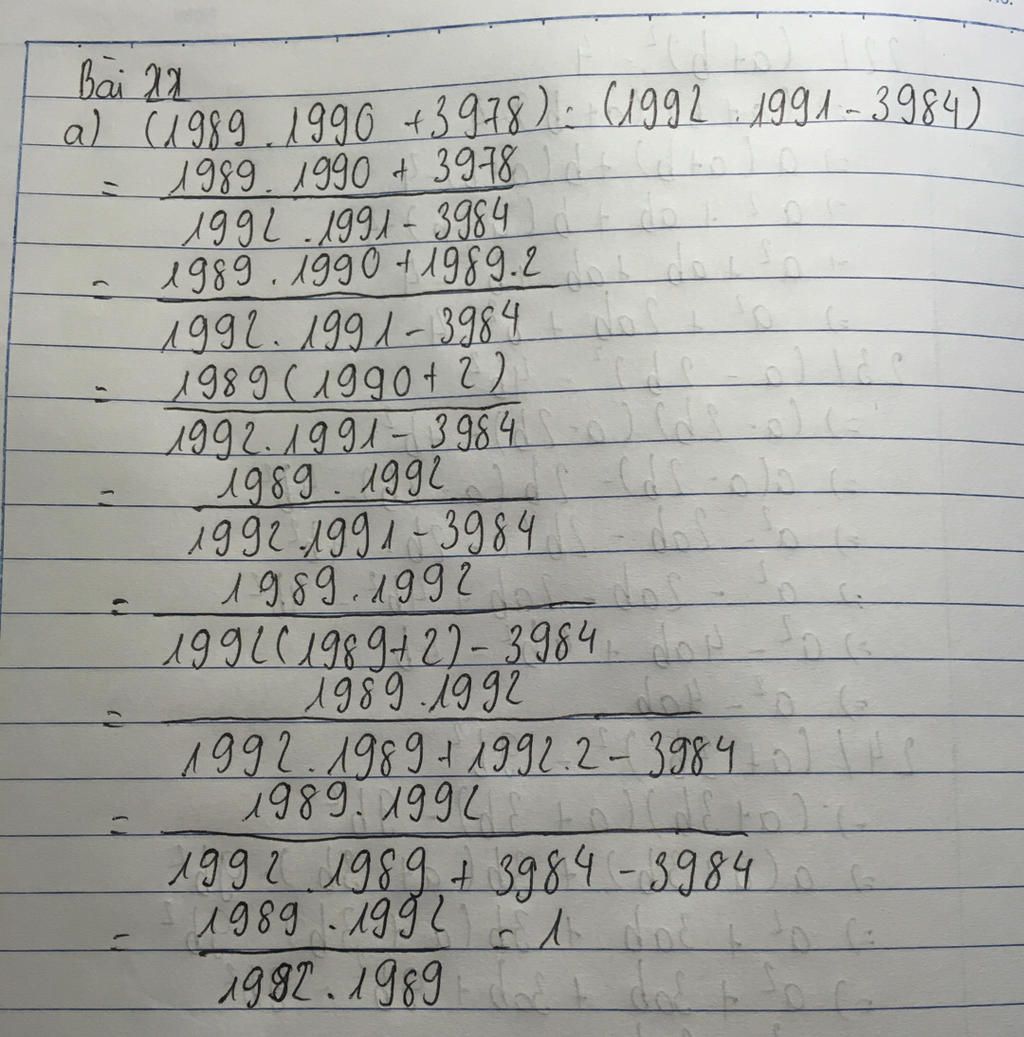 Bài XX
a) (1989 . 1990 + 3978) : (1992 . 1991 - 3984)
= 1989 . 1990 + 3978
1992 . 1991 - 3984
= 1989 . 1990 + 1989.2
1992 . 1991 - 3984
= 1989 (1990 + 2)
1992 . 1991 - 3984
= 1989 . 1992
1992 . 1991 - 3984
= 1989 . 1992
1992 (1989 + 2) - 3984
= 1989 . 1992
1992 . 1989 + 1992.2 - 3984
= 1989 . 1992
1992 . 1989 + 3984 - 3984
= 1989 . 1992 = 1
1992 . 1989